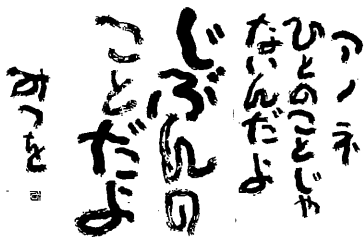 アノネ
ひとのことじゃ
ないんだよ
じぶんの
ことだよ
みつを